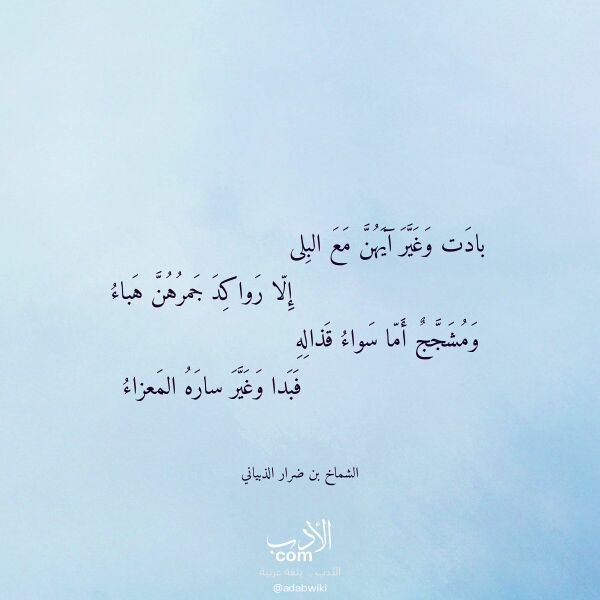 بادَت وَغَيَّرَ آيَهُنَّ مَعَ البِلى
إِلّا رَواكِدَ جَمرُهُنَّ هَباءُ
وَمُشَجَّجٌ أَمّا سَواءُ قَذالِهِ
فَبَدا وَغَيَّرَ سارَهُ المَعزاءُ
الشماخ بن ضرار الذبياني
الأدب
com
الأدب .. بلغة عربية
@adabwiki